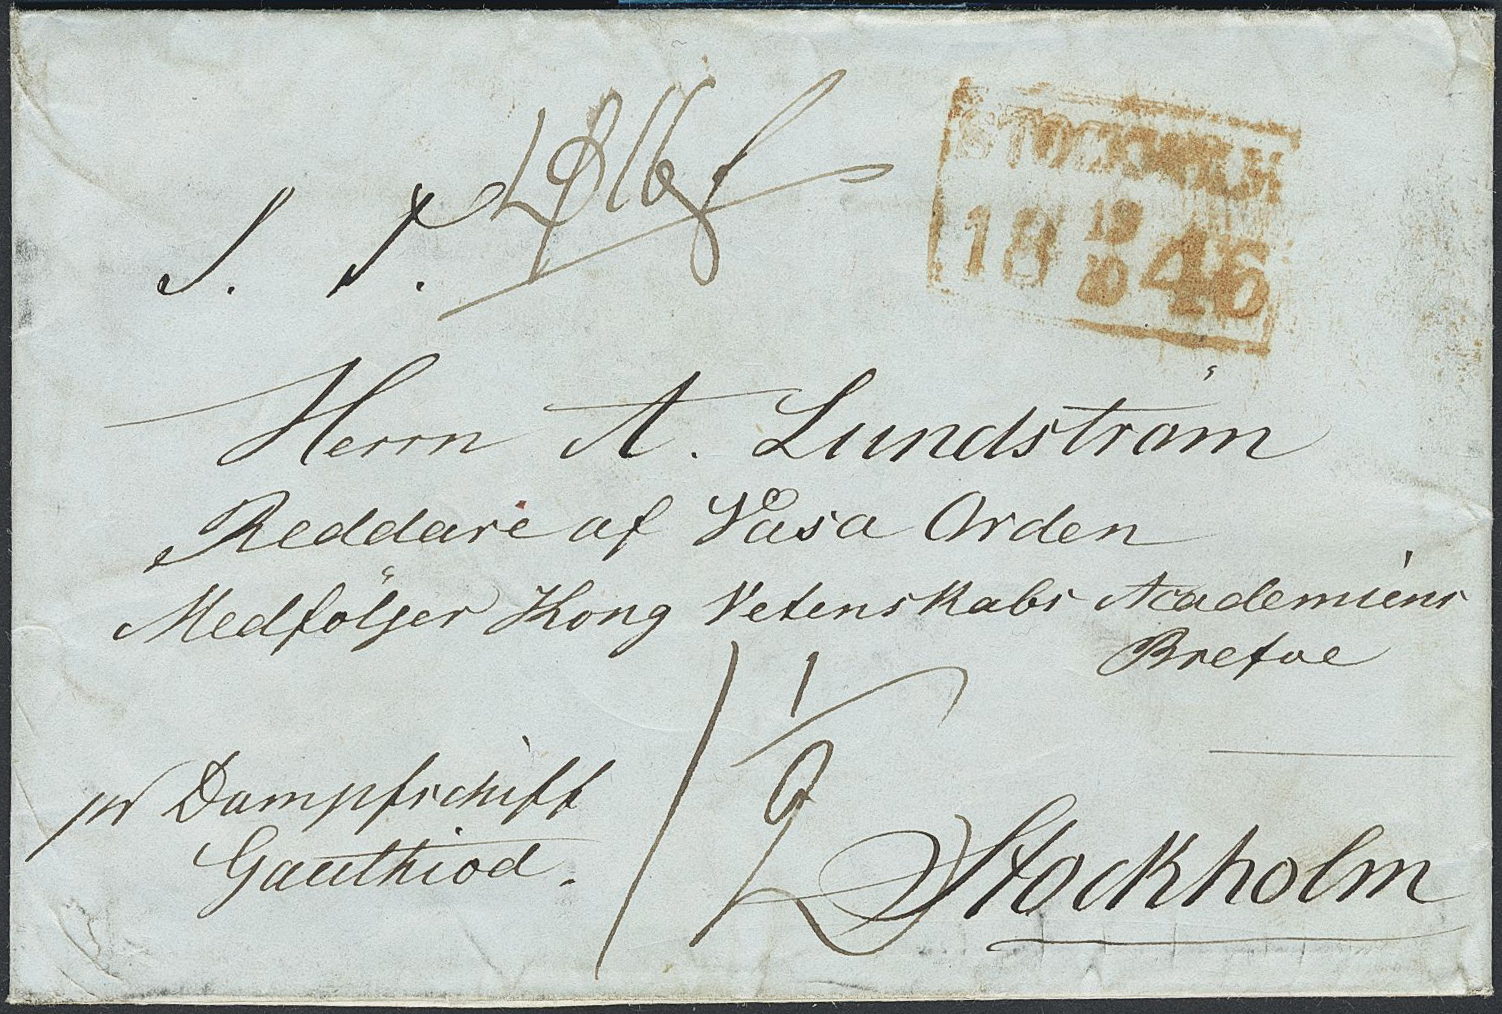 STOCKHOLM
18 19/10 46
S. T.
Herrn A. Lundström
Reddare af Vasa Orden
Medföljer Kong Vetenskabs Academiens
Brefve
1 1/2
pr Dampfschiff
Gauthiod.
Stockholm